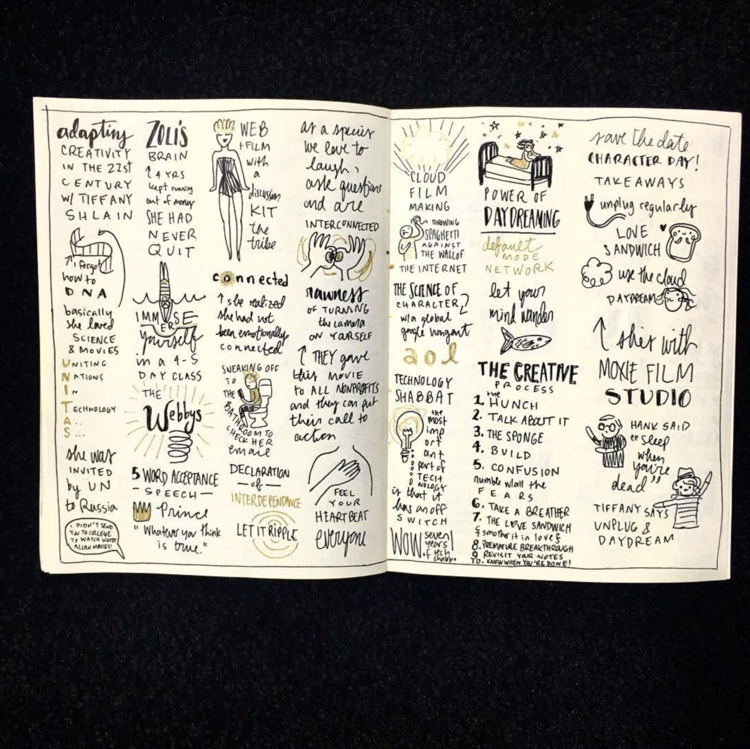 adapting
CREATIVITY
IN THE 21st
CENTURY
W/ TIFFANY
SHLAIN
↑ I forgot
how to
DNA
basically
she loved
SCIENCE
& MOVIES
UNITING
NATIONS
IN
TECHNOLOGY
A...
S...
she was
INVITED
by UN
to Russia
I DIDN'T SEND
YOU TO COLLEGE
TO WATCH WOODY
ALLEN MOVIES!
ZOLI'S
BRAIN
14 YRS
kept running
out of money
SHE HAD
NEVER
QUIT
IMMERSE
yourself
in a 4-5
DAY CLASS
THE
Webbys
5 WORD ACCEPTANCE
- SPEECH -
Prince
"Whatever you think
is true."
WEB
+FILM
with
a
discussion
KIT
the
tribe
connected
↑ she realized
she had not
been emotionally
connected
SNEAKING OFF
TO
THE
BATHROOM TO
CHECK HER
email
DECLARATION
of
INTERDEPENDANCE
LET IT RIPPLE
as a species
we love to
laugh,
ask questions
and are
INTERCONNECTED
rawness
OF TURNING
the camera
ON YOURSELF
↑ THEY gave
this MOVIE
to ALL NONPROFITS
and they can put
their call to
action
FEEL
YOUR
HEARTBEAT
everyone
CLOUD
FILM
MAKING
THROWING
SPAGHETTI
AGAINST
THE WALL OF
THE INTERNET
THE SCIENCE OF
CHARACTER
w/a global
google hangout
aol
TECHNOLOGY
SHABBAT
the
most
imp
ort
ant
part of
TECH
NOLOGY
is that it
has an off
SWITCH
WOW seven
years
of tech
shabbat
POWER OF
DAYDREAMING
default
MODE
NETWORK
let your
mind wander
THE CREATIVE
PROCESS
1. the HUNCH
2. TALK ABOUT IT
3. THE SPONGE
4. BUILD
5. CONFUSION
rumble w/all the
FEARS
6. TAKE A BREATHER
7. THE LOVE SANDWICH
& smother it in love &
8. PREMATURE BREAKTHROUGH
9. REVISIT YOUR NOTES
10. KNOW WHEN YOU'RE DONE!
save the date
CHARACTER DAY!
TAKEAWAYS
unplug regularly
LOVE
SANDWICH
use the cloud
DAYDREAM
↑ she's with
MOXIE FILM
STUDIO
HANK SAID
"sleep
when
you're
dead"
TIFFANY SAYS
UNPLUG &
DAYDREAM